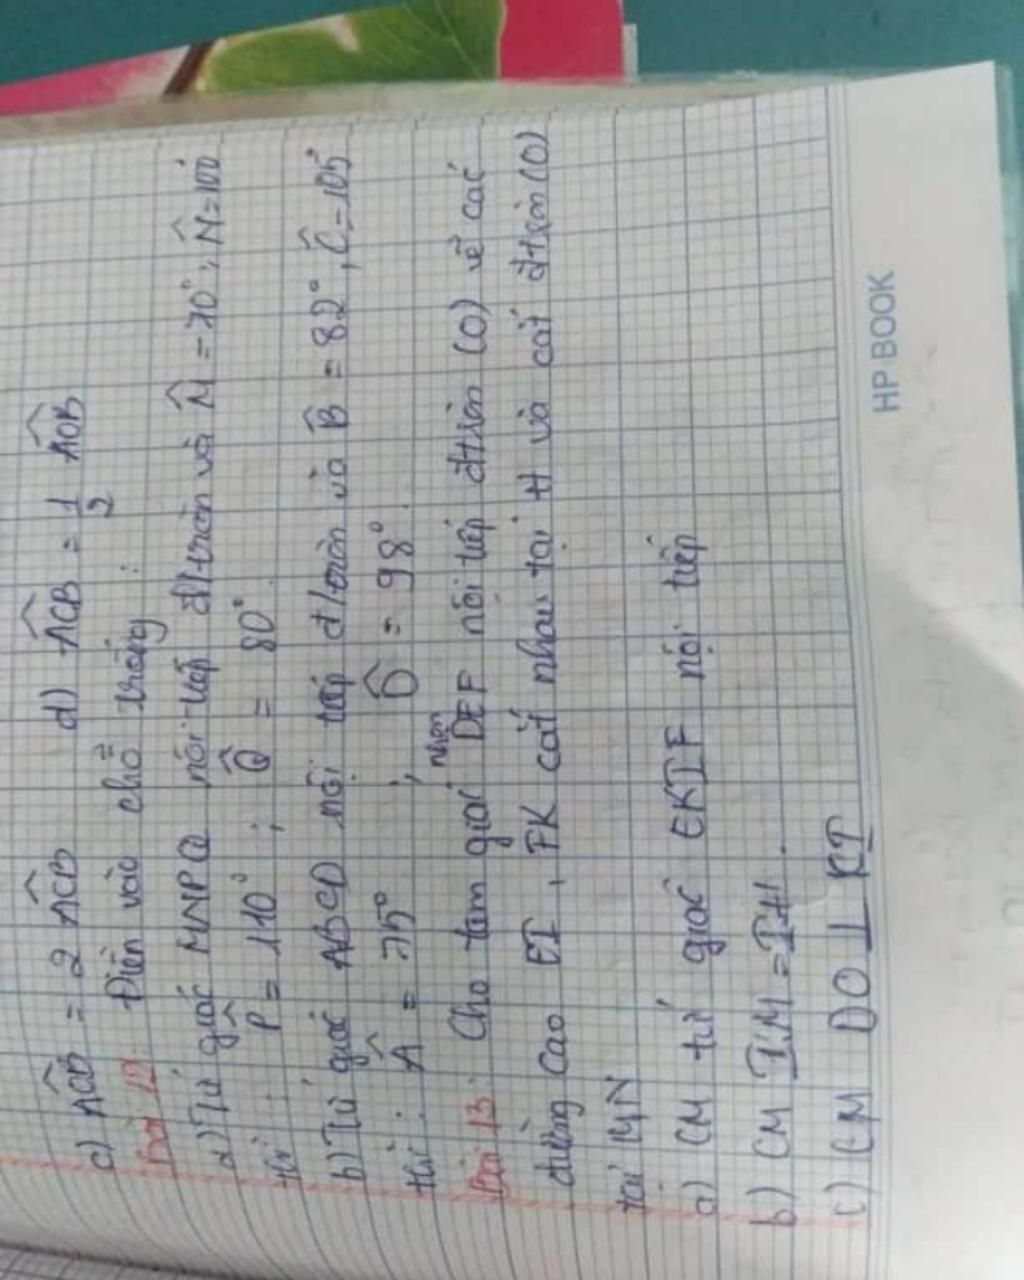 c) AOB = 2 ACB d) ACB = 1/2 AOB
Bài 12: Điền vào chỗ trống:
a) Tứ giác MNPQ nội tiếp đ/tròn và M̂ = 70°, N̂ = 100°
thì: P̂ = 110°; Q̂ = 80°.
b) Tứ giác ABCD nội tiếp đ/tròn và B̂ = 82°, Ĉ = 105°
thì: Â = 75°; D̂ = 98°.
Bài 13: Cho tam giác nhọn DEF nội tiếp đ/tròn (O) vẽ các
đường cao EI, FK cắt nhau tại H và cắt đ/tròn (O)
tại M,N
a) CM tứ giác EKIF nội tiếp
b) CM IM = IH.
c) CM DO ⊥ KI
HP BOOK